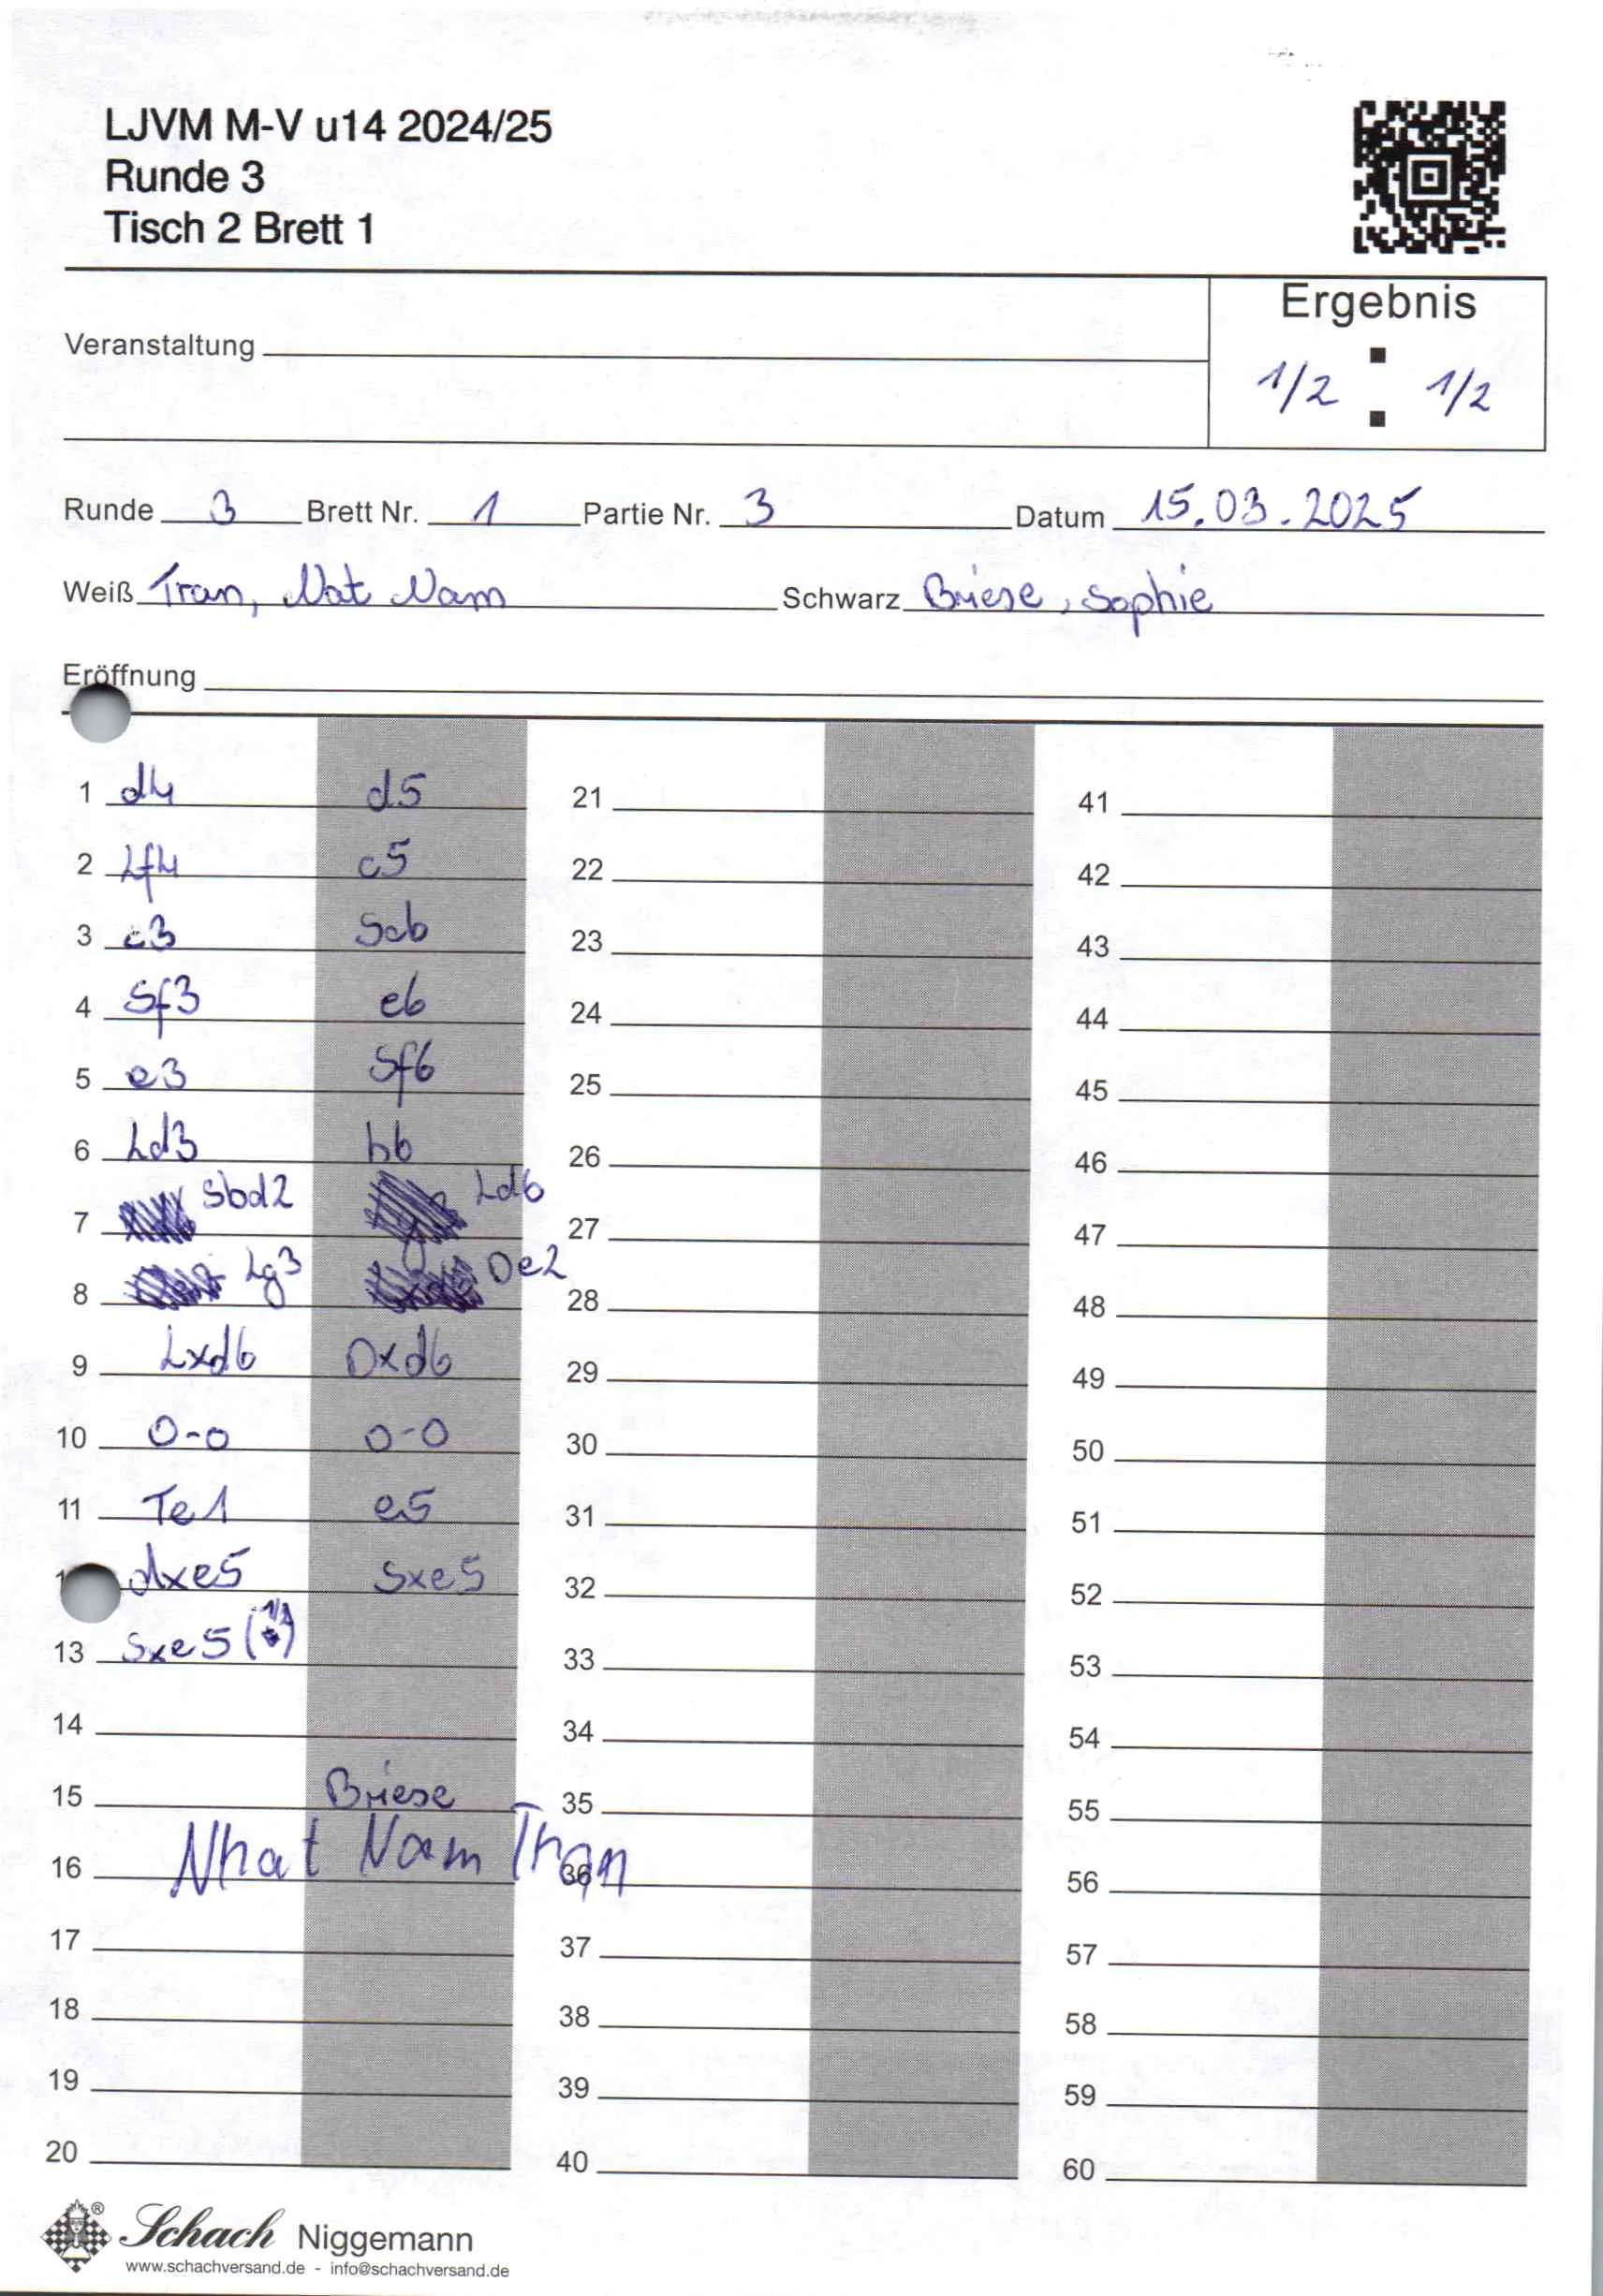 LJVM M-V u14 2024/25
Runde 3
Tisch 2 Brett 1
Ergebnis
Veranstaltung
1/2 : 1/2
Runde 3 Brett Nr. 1 Partie Nr. 3 Datum 15.03.2025
Weiß Tran, Nat Nam Schwarz Briese, Sophie
Eröffnung
1 d4 d5 21 41
2 Lf4 c5 22 42
3 c3 Sc6 23 43
4 Sf3 e6 24 44
5 e3 Sf6 25 45
6 Ld3 b6 26 46
7 Sbd2 Ld6 27 47
8 Lg3 De2 28 48
9 Lxd6 Dxd6 29 49
10 0-0 0-0 30 50
11 Te1 e5 31 51
dxe5 Sxe5 32 52
13 Sxe5 33 53
14 34 54
15 Briese 35 55
16 Nhat Nam Tran 36 56
17 37 57
18 38 58
19 39 59
20 40 60
® Schach Niggemann
www.schachversand.de - info@schachversand.de